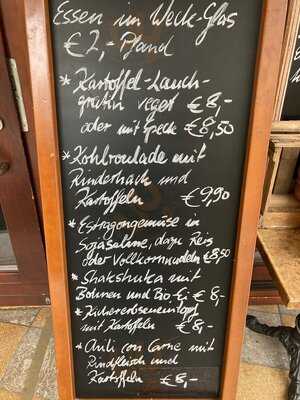 Essen im Weck-Glas
€ 2,- Pfand
* Kartoffel-Lauch-
gratin veget € 8,-
oder mit Speck € 8,50
* Kohlroulade mit
Rinderhack und
Kartoffeln € 9,90
* Estragongemüse in
Sojasahne, dazu Reis
oder Vollkornnudeln € 8,50
* Shakshuka mit
Bohnen und Bio-Ei € 8,-
* Kichererbseneintopf
mit Kartoffeln € 8,-
* Chili con Carne mit
Rindfleisch und
Kartoffeln € 8,-